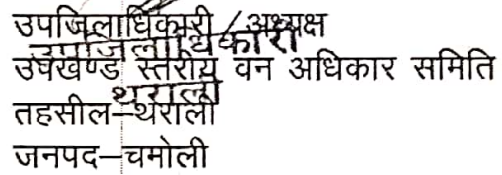 उपजिलाधिकारी/अध्यक्ष
उपजिलाधिकारी
उपखण्ड स्तरीय वन अधिकार समिति
थराली
तहसील–थराली
जनपद–चमोली